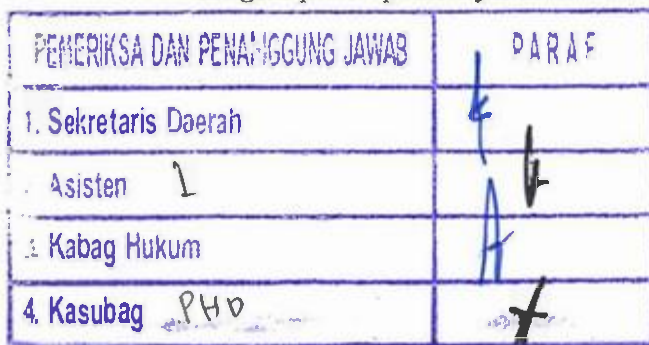 PEMERIKSA DAN PENANGGUNG JAWAB PARAF
1. Sekretaris Daerah
Asisten I
3. Kabag Hukum
4. Kasubag PHD